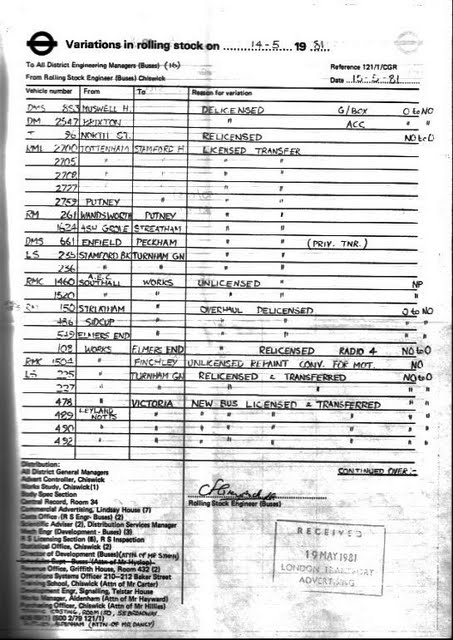 Variations in rolling stock on 14-5 19 81
To All District Engineering Managers (Buses) (16) Reference 121/1/CGR
From Rolling Stock Engineer (Buses) Chiswick Date 15-5-81
Vehicle number From To Reason for variation
DMS 853 MUSWELL H. DELICENSED G/BOX O to NO
DM 2547 BRIXTON " ACC "  "
T 96 NORTH ST. RELICENSED NO to O
RML 2700 TOTTENHAM STAMFORD H LICENSED TRANSFER
2705 " " " "
2708 " " " "
2727 " " " "
2759 PUTNEY " " "
RM 261 WANDSWORTH PUTNEY " "
1624 ASH GROVE STREATHAM " "
DMS 661 ENFIELD PECKHAM " " (PRIV. TNR.)
LS 235 STAMFORD BK TURNHAM GN " "
236 " " " "
RMC 1460 A.E.C. SOUTHALL WORKS UNLICENSED " NP
1520 " " " " "
RM 150 STREATHAM " OVERHAUL DELICENSED O to NO
486 SIDCUP " " " "
549 ELMERS END " " " "
109 WORKS ELMERS END " RELICENSED RADIO 4 NO to O
RMC 1504 " FINCHLEY UNLICENSED REPAINT CONV. FOR MOT. NO
LS 225 " TURNHAM GN RELICENSED & TRANSFERRED NO to O
227 " " " " " "
478 " VICTORIA NEW BUS LICENSED & TRANSFERRED "
489 LEYLAND NOTTS " " " " " "
490 " " " " " " "
492 " " " " " " "
CONTINUED OVER :-
Distribution:
All District General Managers
Advert Controller, Chiswick
Works Study, Chiswick (1)
Body Spec Section
Central Record, Room 34
Commercial Advertising, Lindsay House (7)
Costs Office (R S Engr- Buses) (2)
Scientific Adviser (2), Distribution Services Manager
Tech Engr (Development - Buses) (3)
R S Licensing Section (6), R S Inspection
Statistical Office, Chiswick (2)
Director of Development (Buses) (ATTN OF MR SIMON)
Schedules Dept - Buses (Attn of Mr Hyslop)
Office, Griffith House, Room 432 (2)
Operations Systems Officer 210-212 Baker Street
School, Chiswick (Attn of Mr Carter)
Development Engr, Signalling, Telstar House
Works Manager, Aldenham (Attn of Mr Hayward)
Purchasing Officer, Chiswick (Attn of Mr Hillies)
55 BROADWAY
(500 2/79 121/1)
ALDENHAM (ATTN OF MR DANCY)
Rolling Stock Engineer (Buses)
RECEIVED
19 MAY 1981
LONDON TRANSPORT
ADVERTISING